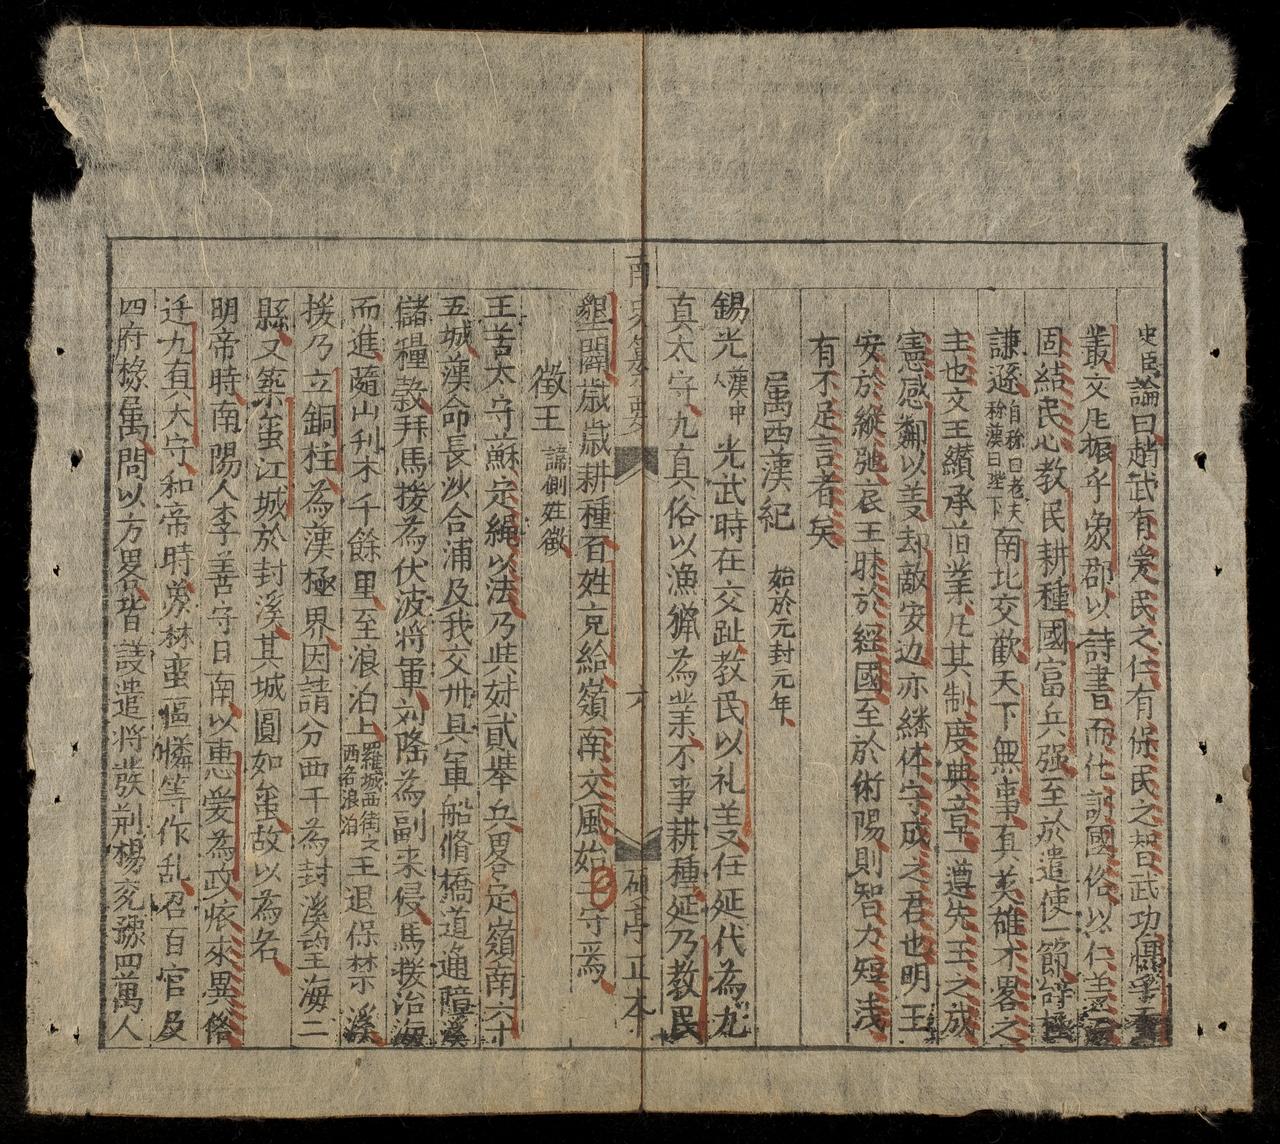 史臣論曰趙武有爱民之仁有保民之智武功
叢文凢振乎象郡以詩書而仕訓國俗以仁義
固結民心教民耕種國富兵强至於遣使一節辞極
謙遜自称曰老夫称漢曰陛下南北交歡天下無事真英雄才畧之
主也文王纘承旧業凢其制度典章一遵先王之成
憲感鄰以義却敵安边亦繼体守成之君也明王
安於縱弛哀王昧於經國至於術陽則智力短浅
有不足言者矣
属西漢紀 始於元封元年
錫光漢中人光武時在交趾教民以礼義又任延代為九
真太守九真俗以漁獵為業不事耕種延乃教民
南史纂要 六 碩亭正本
墾闢歳歳耕種百姓充給嶺南文風始二守焉
徵王 諱側姓徵
王苦太守蘇定繩以法乃與妹貳舉兵畧定嶺南六十
五城漢命長沙合浦及我交州具軍船脩橋道通障溪
儲糧穀拜馬援為伏波将軍刘隆為副来侵馬援治海
而進隨山刋木千餘里至浪泊上羅城西街之西名浪泊王退保禁溪
援乃立銅柱為漢極界因請分西于為封溪望海二
縣又築茧江城於封溪其城圓如茧故以為名
明帝時南陽人李善守日南以惠爱為政懷來異俗
迁九真太守和帝時象林蛮區憐等作乱召百官及
四府掾属問以方畧皆議遣将發荊楊兖豫四萬人